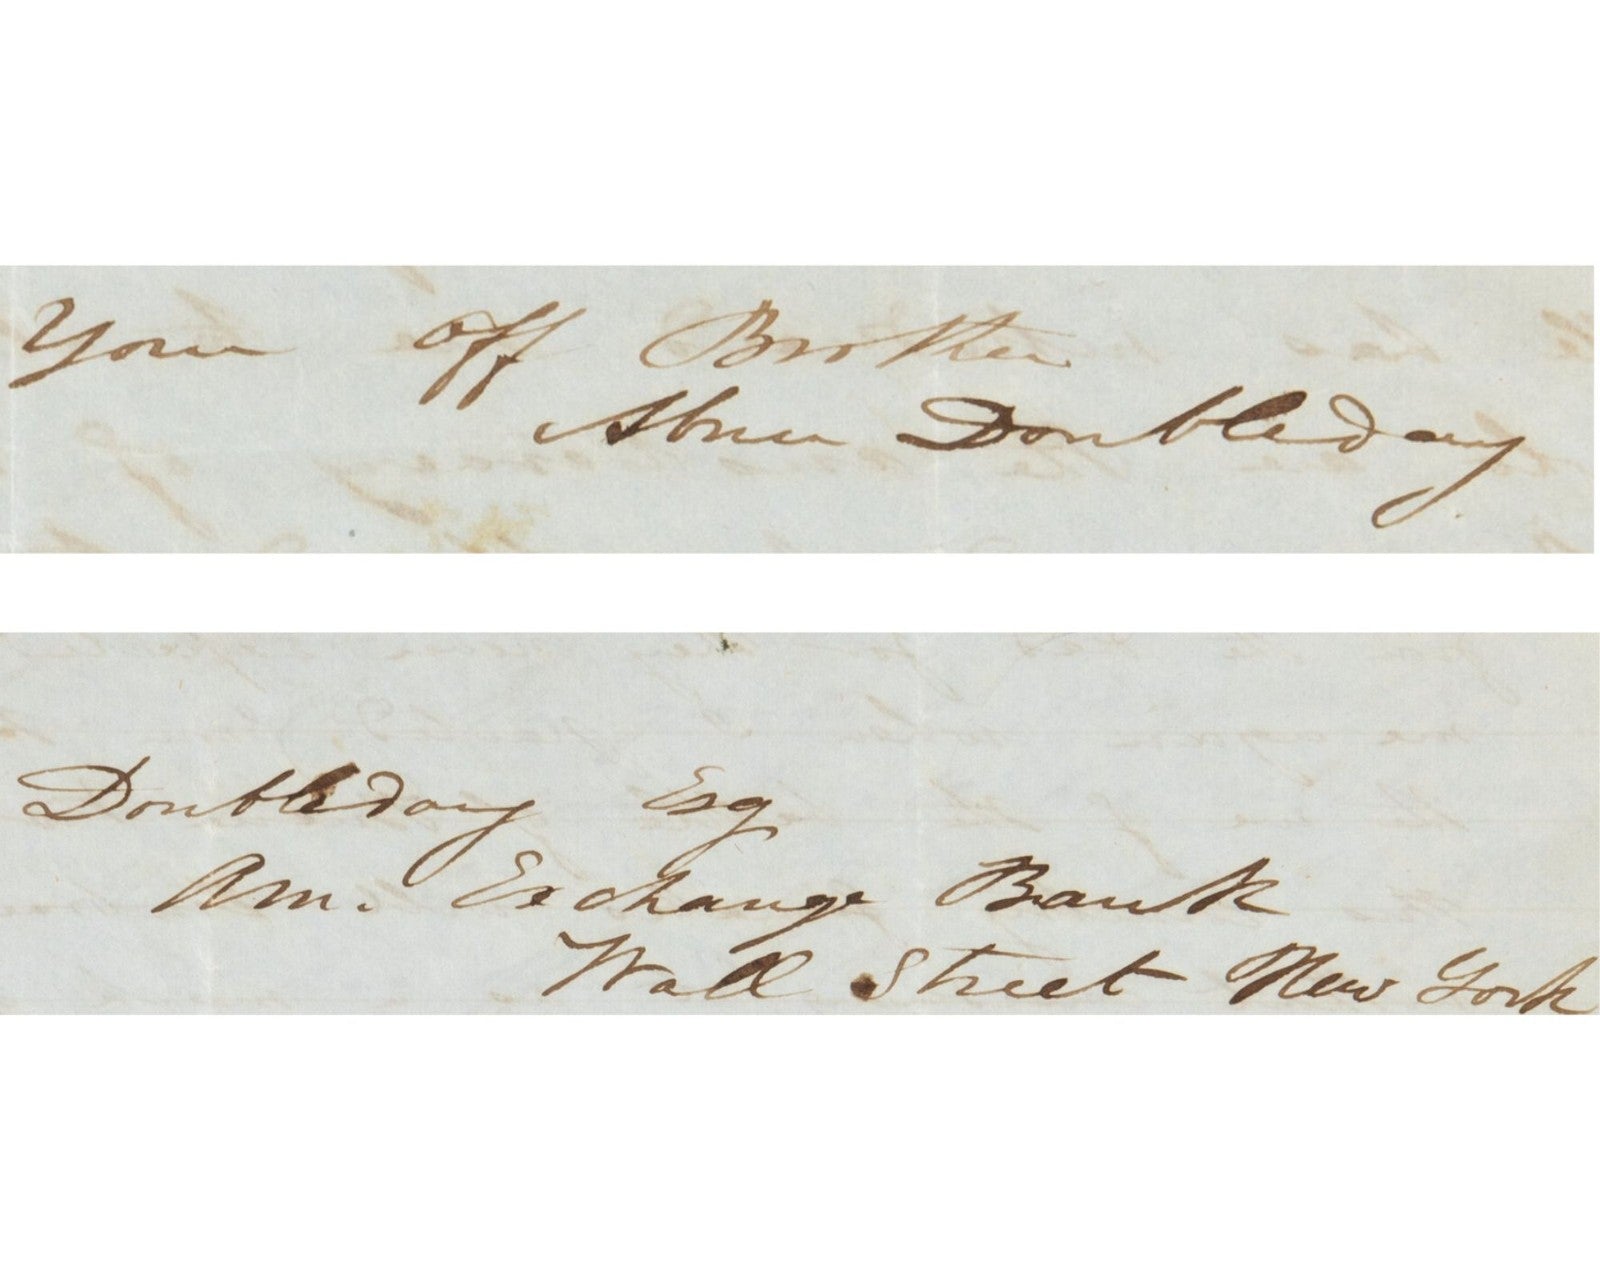 Your aff Brother
Abner Doubleday
Doubleday Esq
Am. Exchange Bank
Wall Street New York